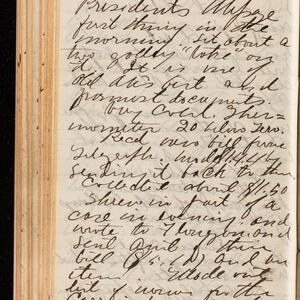 Presidents Message
first thing in the
morning, it about a
two gallon "take" on
it. It is one of
old Abe's best and
frankest documents.
Day Cold. Ther=
mometer 20 below Zero.
Recd over bill from
Telegraph. made $14.41 by
Sending it back to them
Collected about $1.50
Threw in part of a
case in evening and
wrote to Houghton and
sent amt of their
bill and on
them. Made out
list of names for the